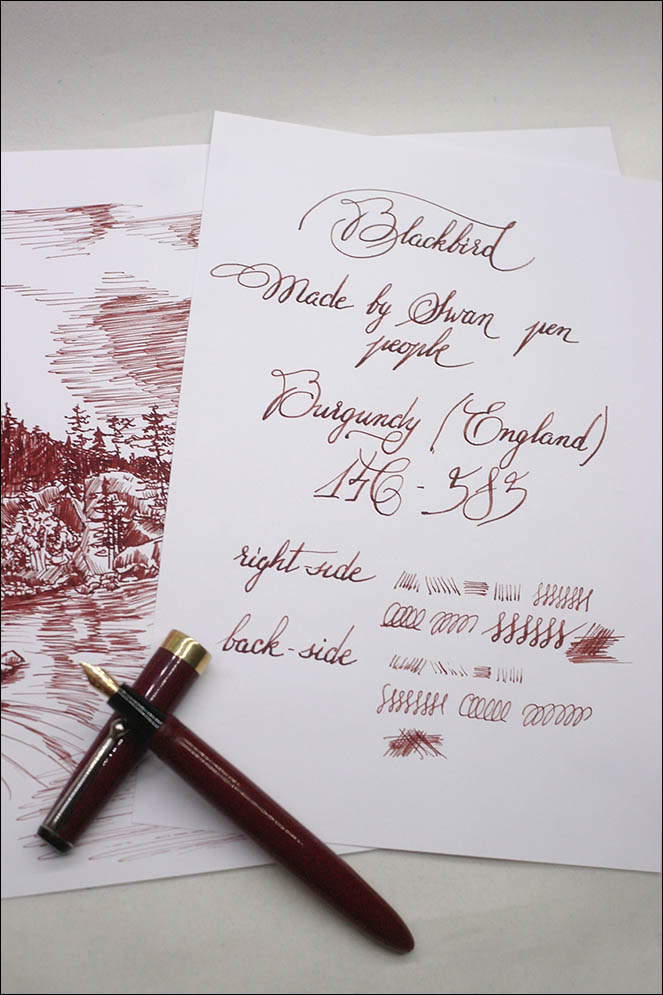 Blackbird
Made by Swan pen
people
Burgundy (England)
14C - 585
right-side
back-side